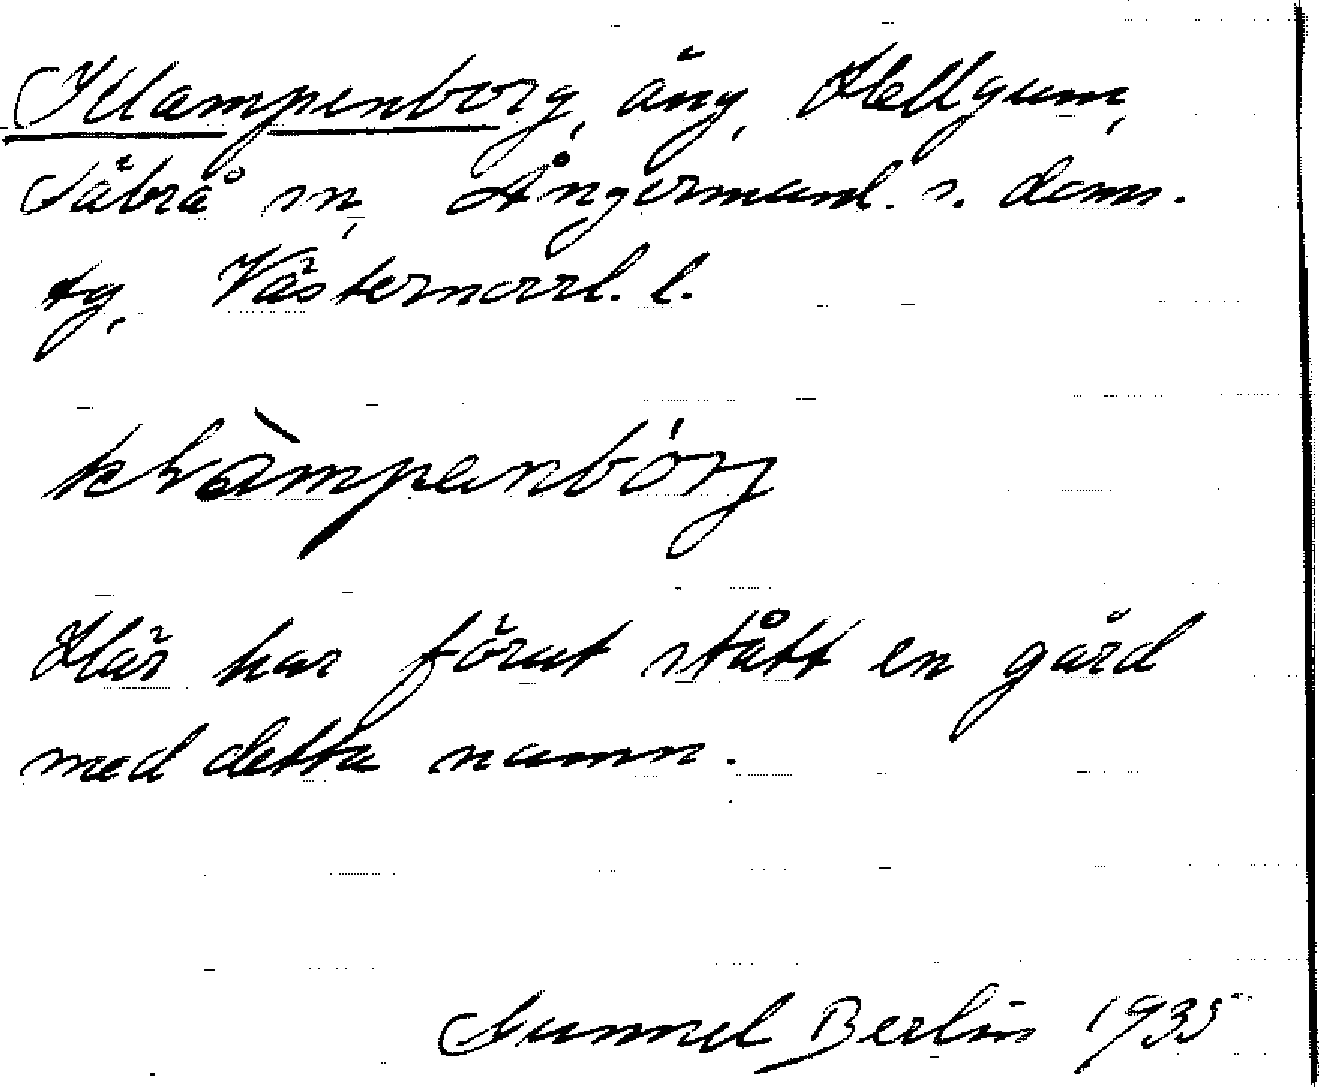 (Klampenborg, äng, Hellgum,
Säbrå sn, Ångermanl. s. doms.
tg, Västernorrl. l.
klàmpenbórj
Här har förut stått en gård
med detta namn.
Gunnel Berlin 1935